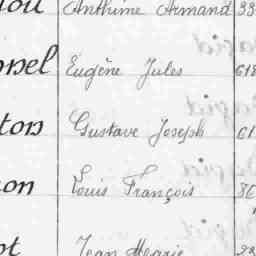 Anthime Armand 33
onel Eugène Jules 618
ton Gustave Joseph 61
on Louis François
ot Jean Marie